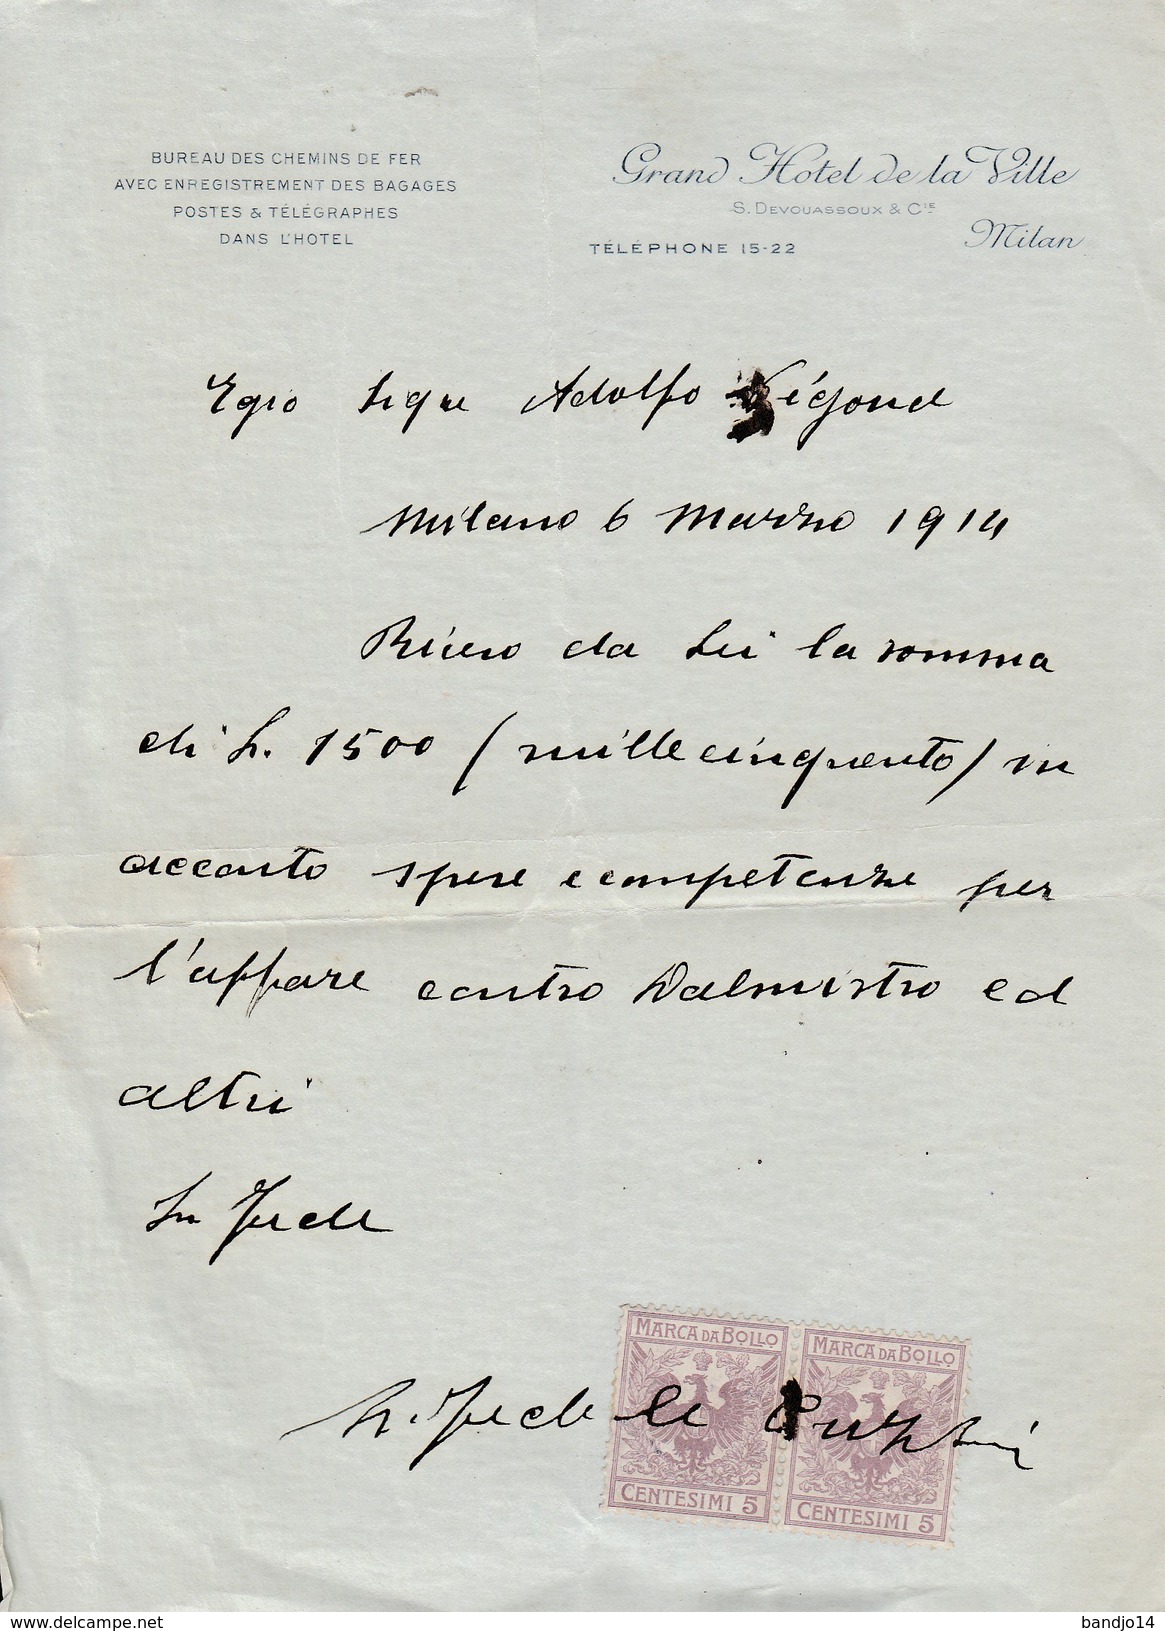 BUREAU DES CHEMINS DE FER
AVEC ENREGISTREMENT DES BAGAGES
POSTES & TÉLÉGRAPHES
DANS L'HOTEL
Grand Hotel de la Ville
S. DEVOUASSOUX & CIE
Milan
TÉLÉPHONE 15-22
Egio Sigre Adolfo Pégoud
Milano 6 Marzo 1914
Ricevo da Lei la somma
di L. 1500 (millecinquento) in
acconto spese e competenze per
l'affare contro Dalmistro ed
altri
In fede
MARCA DA BOLLO
MARCA DA BOLLO
CENTESIMI 5
CENTESIMI 5
delcampe.net
bandjo14